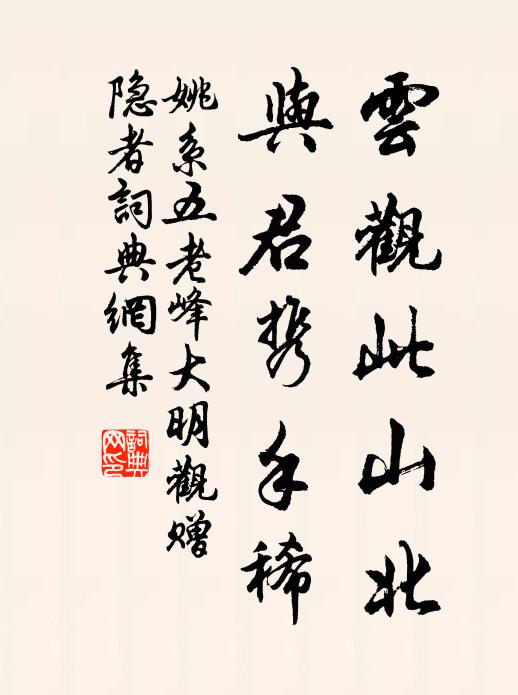 雲觀此山北
與君携手稀
姚系五老峰大明觀赠
隐者詞典網集
詞典网印